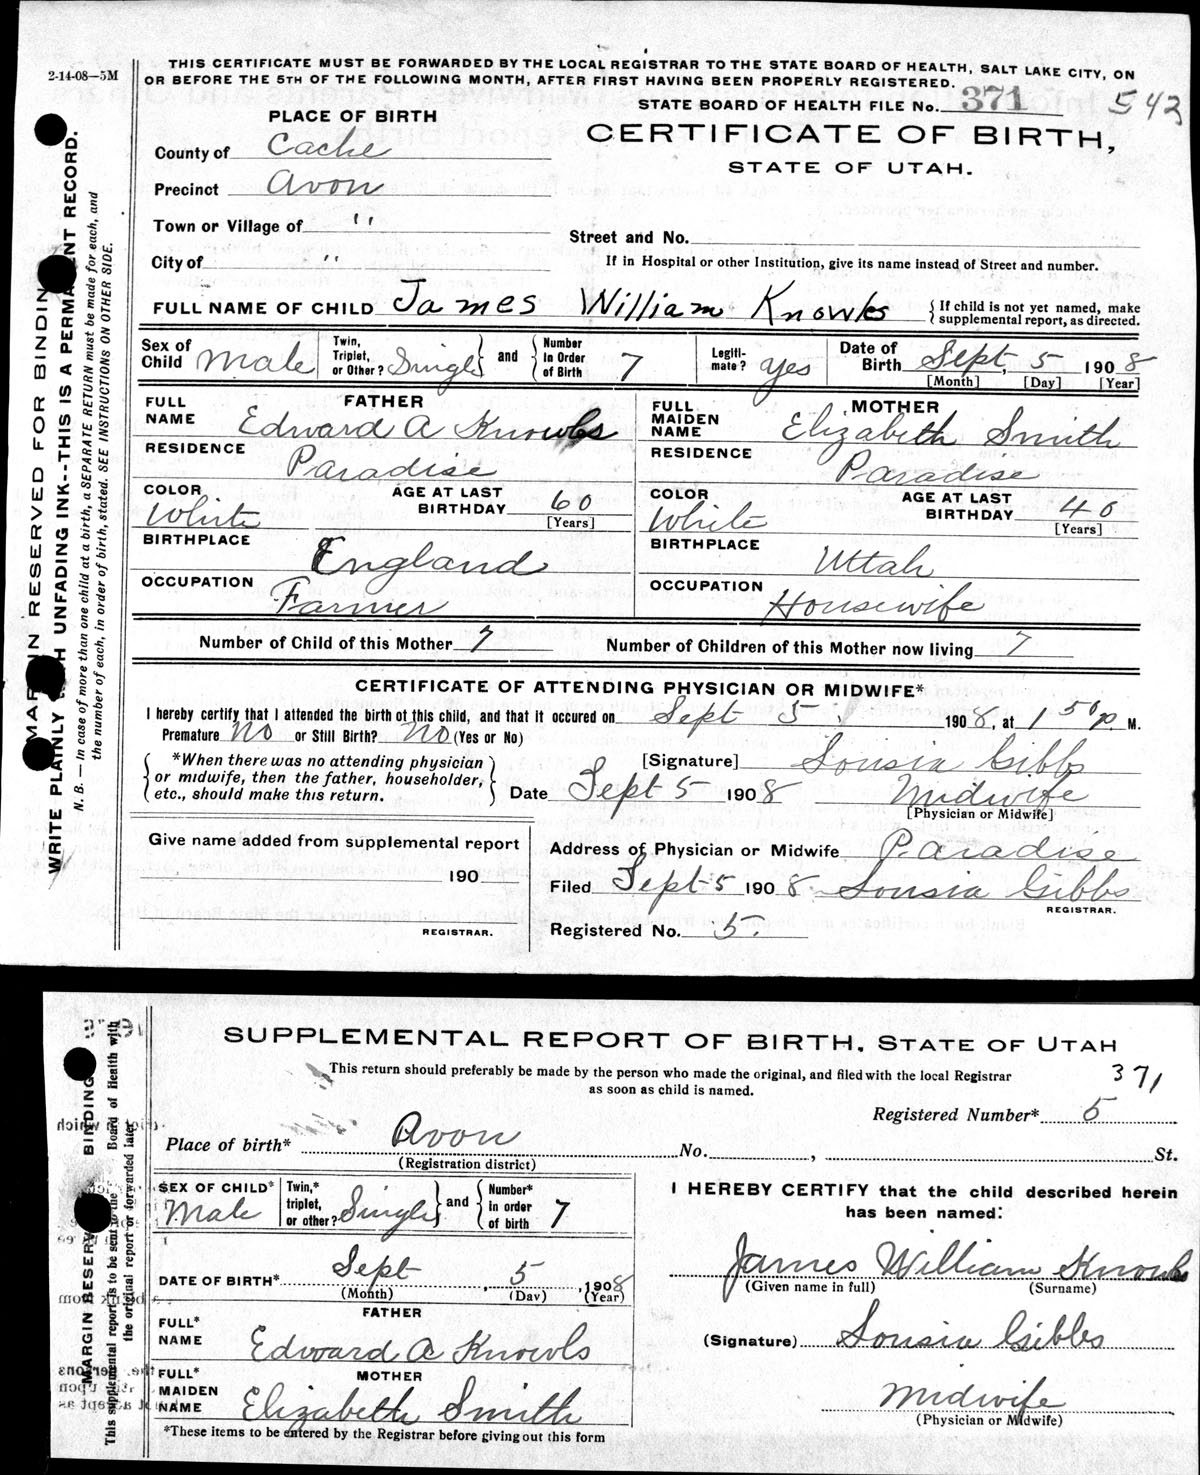 2-14-08—5M
THIS CERTIFICATE MUST BE FORWARDED BY THE LOCAL REGISTRAR TO THE STATE BOARD OF HEALTH, SALT LAKE CITY, ON
OR BEFORE THE 5TH OF THE FOLLOWING MONTH, AFTER FIRST HAVING BEEN PROPERLY REGISTERED.
STATE BOARD OF HEALTH FILE No. 371 543
PLACE OF BIRTH
CERTIFICATE OF BIRTH,
STATE OF UTAH.
County of Cache
Precinct Avon
Town or Village of "
Street and No.
City of "
If in Hospital or other Institution, give its name instead of Street and number.
FULL NAME OF CHILD James William Knowls { If child is not yet named, make
supplemental report, as directed.
Sex of Child Male
Twin, Triplet, or Other? Single and Number In Order of Birth 7
Legiti-mate? Yes
Date of Birth Sept. 5 1908
[Month] [Day] [Year]
FATHER
FULL NAME Edward A Knowls
RESIDENCE Paradise
COLOR White
AGE AT LAST BIRTHDAY 60
[Years]
BIRTHPLACE England
OCCUPATION Farmer
MOTHER
FULL MAIDEN NAME Elizabeth Smith
RESIDENCE Paradise
COLOR White
AGE AT LAST BIRTHDAY 40
[Years]
BIRTHPLACE Uttah
OCCUPATION Housewife
Number of Child of this Mother 7 Number of Children of this Mother now living 7
CERTIFICATE OF ATTENDING PHYSICIAN OR MIDWIFE*
I hereby certify that I attended the birth of this child, and that it occured on Sept 5 1908, at 1 50 p. M.
Premature No or Still Birth? No (Yes or No)
*When there was no attending physician
or midwife, then the father, householder,
etc., should make this return.
[Signature] Lousia Gibbs
Date Sept 5 1908 Midwife
[Physician or Midwife]
Give name added from supplemental report
190
REGISTRAR.
Address of Physician or Midwife Paradise
Filed Sept 5 1908 Lousia Gibbs
REGISTRAR.
Registered No. 5.
MARGIN RESERVED FOR BINDING
WRITE PLAINLY WITH UNFADING INK--THIS IS A PERMANENT RECORD.
N. B. — In case of more than one child at a birth, a SEPARATE RETURN must be made for each, and
the number of each, in order of birth, stated. SEE INSTRUCTIONS ON OTHER SIDE.
SUPPLEMENTAL REPORT OF BIRTH, STATE OF UTAH
This return should preferably be made by the person who made the original, and filed with the local Registrar
as soon as child is named.
371
Registered Number* 5
Place of birth* Avon No. , St.
(Registration district)
SEX OF CHILD* Male
Twin,* triplet, or other? Single and Number* in order of birth 7
DATE OF BIRTH* Sept 5, 1908
(Month) (Day) (Year)
FATHER
FULL* NAME Edward A Knowls
MOTHER
FULL* MAIDEN NAME Elizabeth Smith
*These items to be entered by the Registrar before giving out this form
I HEREBY CERTIFY that the child described herein
has been named:
James William Knowls
(Given name in full) (Surname)
(Signature) Lousia Gibbs
Midwife
(Physician or Midwife)
MARGIN RESERV BINDING
This supplemental report is to be sent to the Board of Health with
the original report or forwarded later